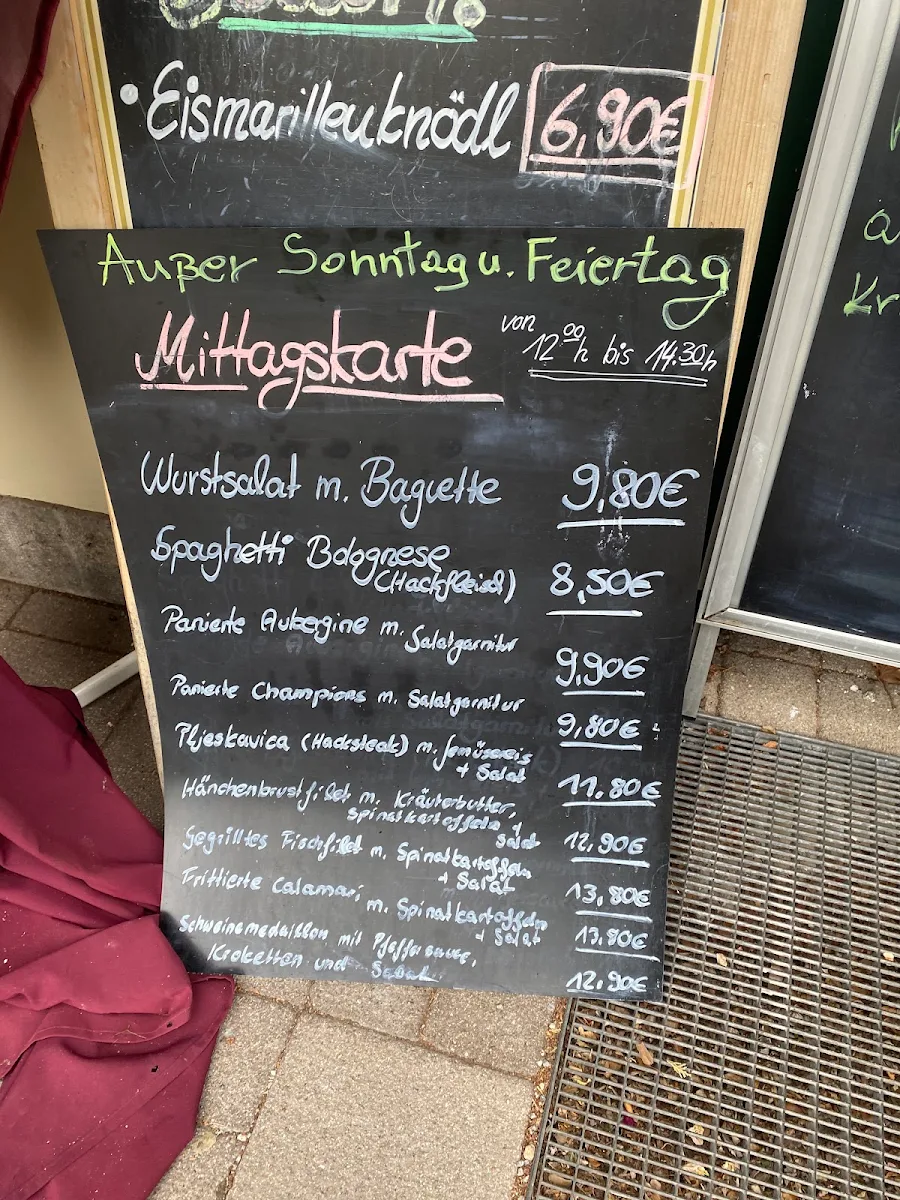 • Eismarillenknödl 6,90€
Außer Sonntag u. Feiertag
Mittagskarte von 12⁰⁰h bis 14.30h
Wurstsalat m. Baguette 9,80€
Spaghetti Bolognese
(Hackfleisch) 8,50€
Panierte Aubergine m. Salatgarnitur
9,90€
Panierte Champions m. Salatgarnitur
9,80€
Pljeskavica (Hacksteak) m. Gemüsereis
+ Salat 11,80€
Hänchenbrustfilet m. Kräuterbutter,
Spinatkartoffeln +
Salat 12,90€
Gegrilltes Fischfilet m. Spinatkartoffeln
+ Salat 13,80€
Frittierte Calamari,
m. Spinatkartoffeln
+ Salat 13,80€
Schweinemedaillon mit Pfeffersauce,
Kroketten und Salat 12,90€
Kr